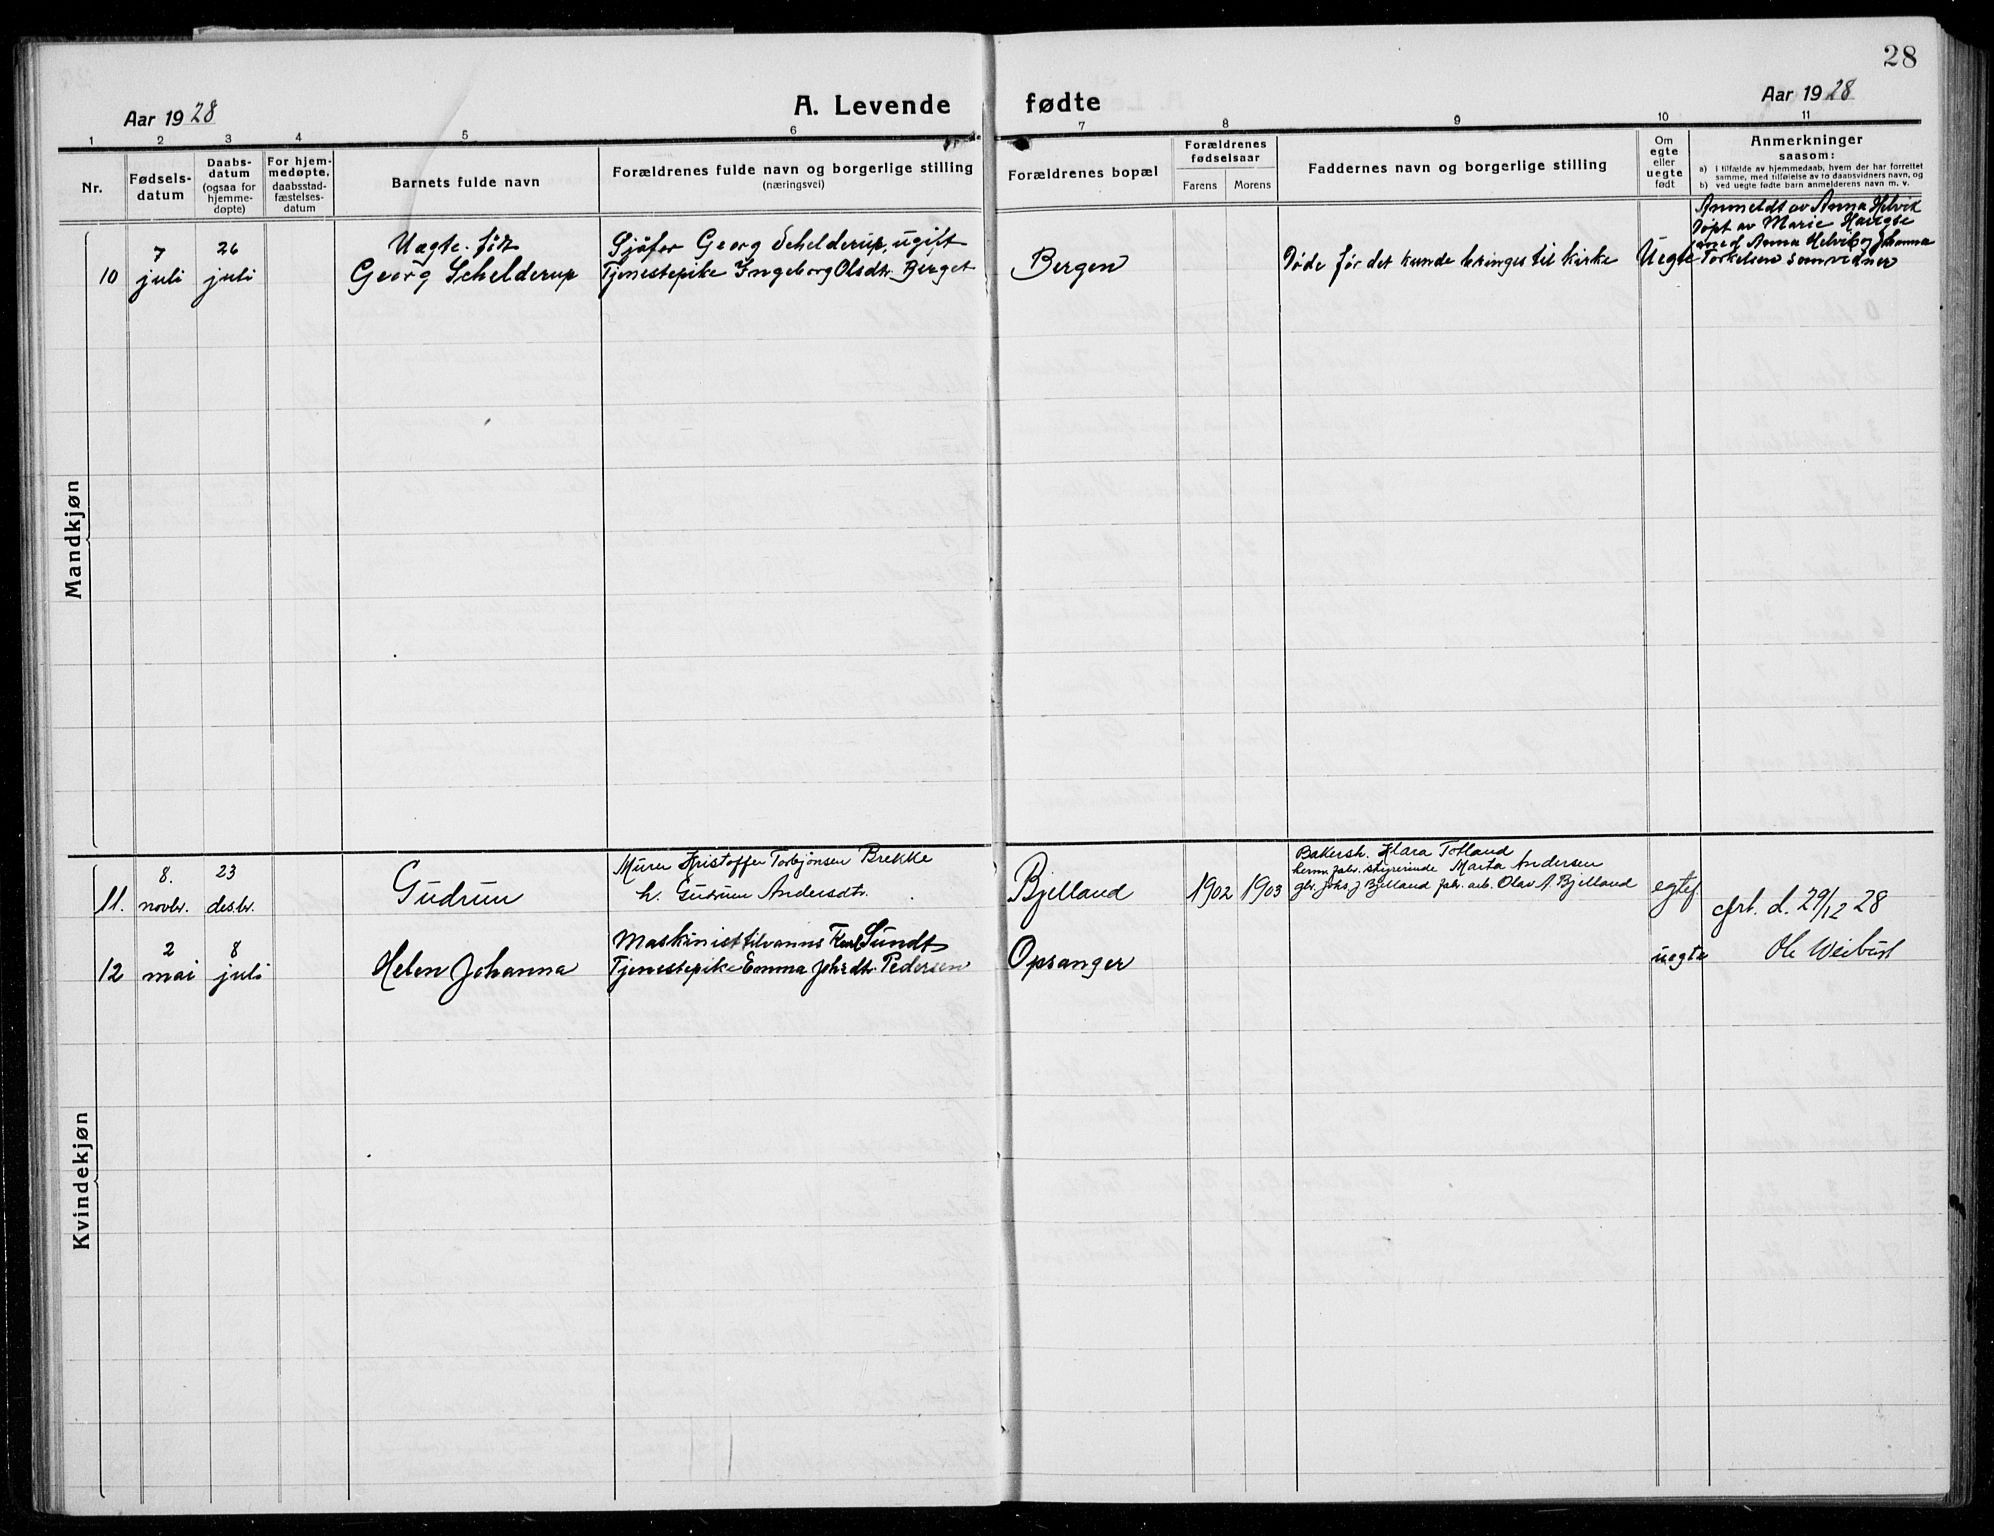 28
Aar 1928
A. Levende fødte
Aar 1928
1 2 3 4 5 6 7 8 9 10 11
Nr.
Fødsels-
datum
Daabs-
datum
(ogsaa for
hjemme-
døpte)
For hjem-
medøpte,
daabsstad-
fæstelses-
datum
Barnets fulde navn
Forældrenes fulde navn og borgerlige stilling
(næringsvei)
Forældrenes bopæl
Forældrenes
fødselsaar
Farens Morens
Faddernes navn og borgerlige stilling
Om
egte
eller
uegte
født
Anmerkninger
saasom:
a) I tilfælde av hjemmedaab, hvem der har forrettet
samme, med tilføielse av to daabsvidners navn, og
b) ved uegte fødte barn anmelderens navn m. v.
Mandkjøn
10
7
juli
26
juli
Uegte. født
Georg Schelderup
Sjåfør Georg Schelderup, ugift
Tjenestepike Ingeborg Olsdtr. Berget
Bergen
Døde før det kunde bringes til kirke
Uegte
Anmeldt av Anna Helvik
Døpt av Marie
med Anna Helvik og Johanna
Torkelsen som vidner
Kvindekjøn
11.
8.
novbr.
23
desbr.
Gudrun
Murer Kristoffer Torbjönsen Brekke
h. Gudrun Andersdtr.
Bjelland
1902 1903
Bakersk. Klara Totland
herm. fabr. styrerinde Marta Andersen
gbr. Johs J Bjelland fabr. arb. Olav A. Bjelland
egtef.
frt. d. 29/12 28
12
2
mai
8
juli
Helen Johanna
Maskinist tilvanns Karl Sundt
Tjenestepike Emma Johsdtr. Pedersen
Opsanger
uegte
Ole Weibust